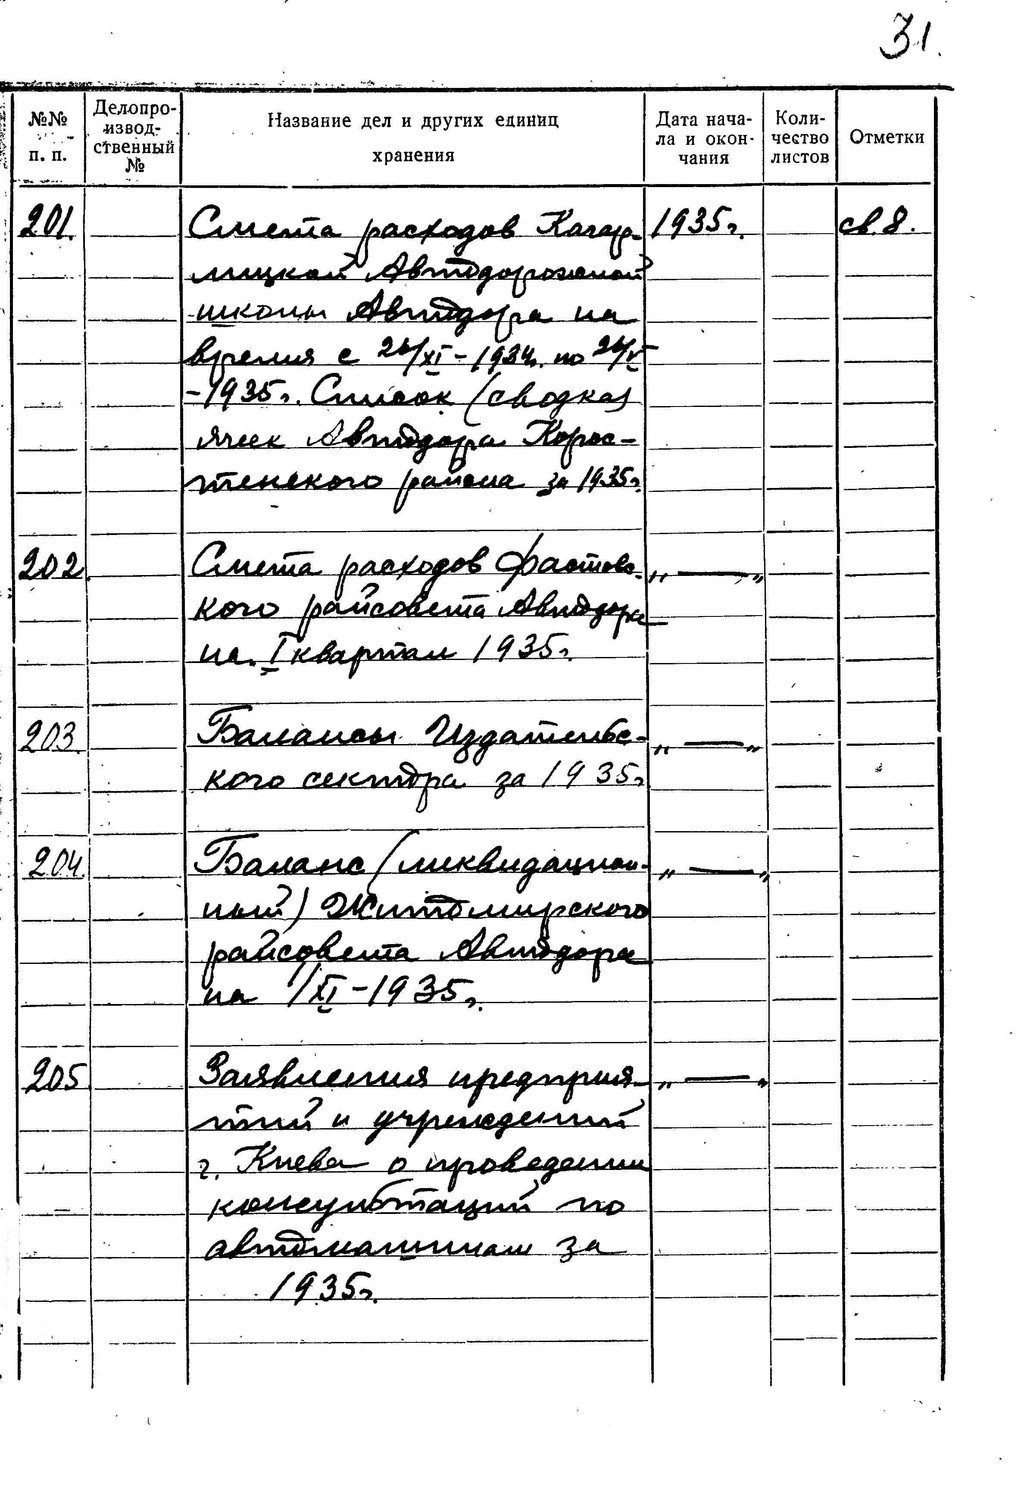 31.
№№ п. п.
Делопро-
извод-
ственный
№
Название дел и других единиц
хранения
Дата нача-
ла и окон-
чания
Коли-
чество
листов
Отметки
201. Смета расходов Кагар- 1935г. св. 8.
лицкой Автодорожной
школы Автодора на
время с 26/XI-1934г. по 26/V
-1935г. Список (сводка)
ячеек Автодора Корос-
тенского района за 1935г.
202. Смета расходов Фастовс- „ — „
кого райсовета Автодора
на I квартал 1935г.
203. Балансы Издательс- „ — „
кого сектора за 1935г
204. Баланс (ликвидацион- „ — „
ный) Житомирского
райсовета Автодора
на 1/XI-1935г.
205 Заявления предприя- „ — „
тий и учреждений
г. Киева о проведении
консультаций по
автомашинам за
1935г.